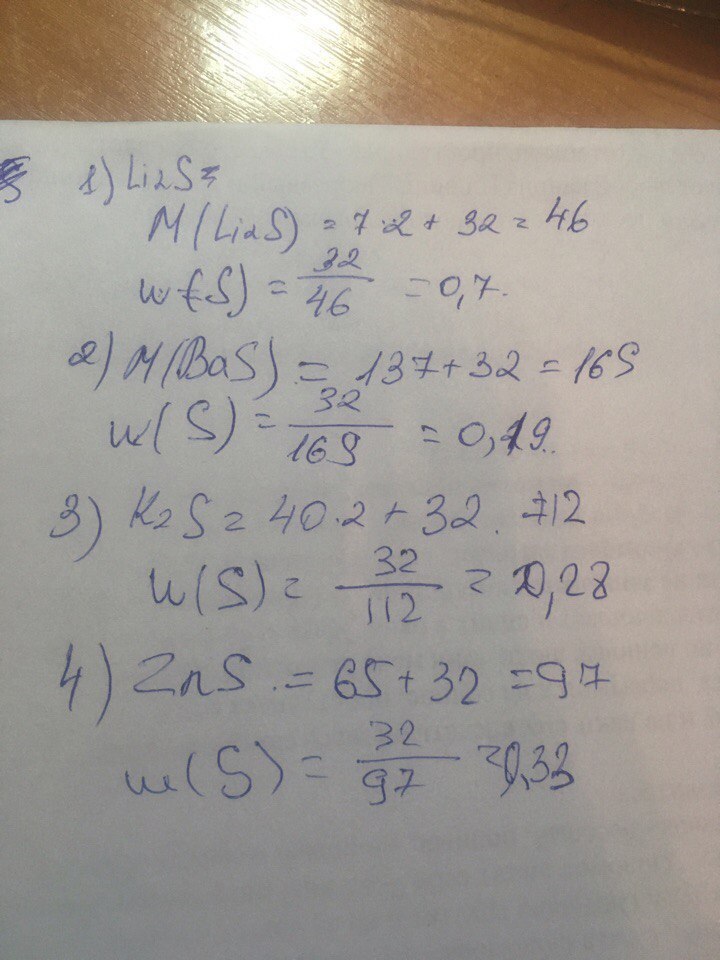 1) Li2S =
M(Li2S) = 7·2 + 32 = 46
w(S) = 32/46 = 0,7.
2) M(BaS) = 137 + 32 = 169
w(S) = 32/169 = 0,19.
3) K2S = 40·2 + 32. = 112
w(S) = 32/112 = 0,28
4) ZnS. = 65 + 32 = 97
w(S) = 32/97 = 0,33